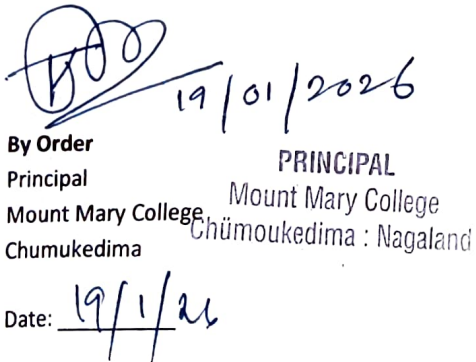 19/01/2026
By Order
Principal
Mount Mary College,
Chumukedima
PRINCIPAL
Mount Mary College
Chümoukedima : Nagaland
Date: 19/1/26